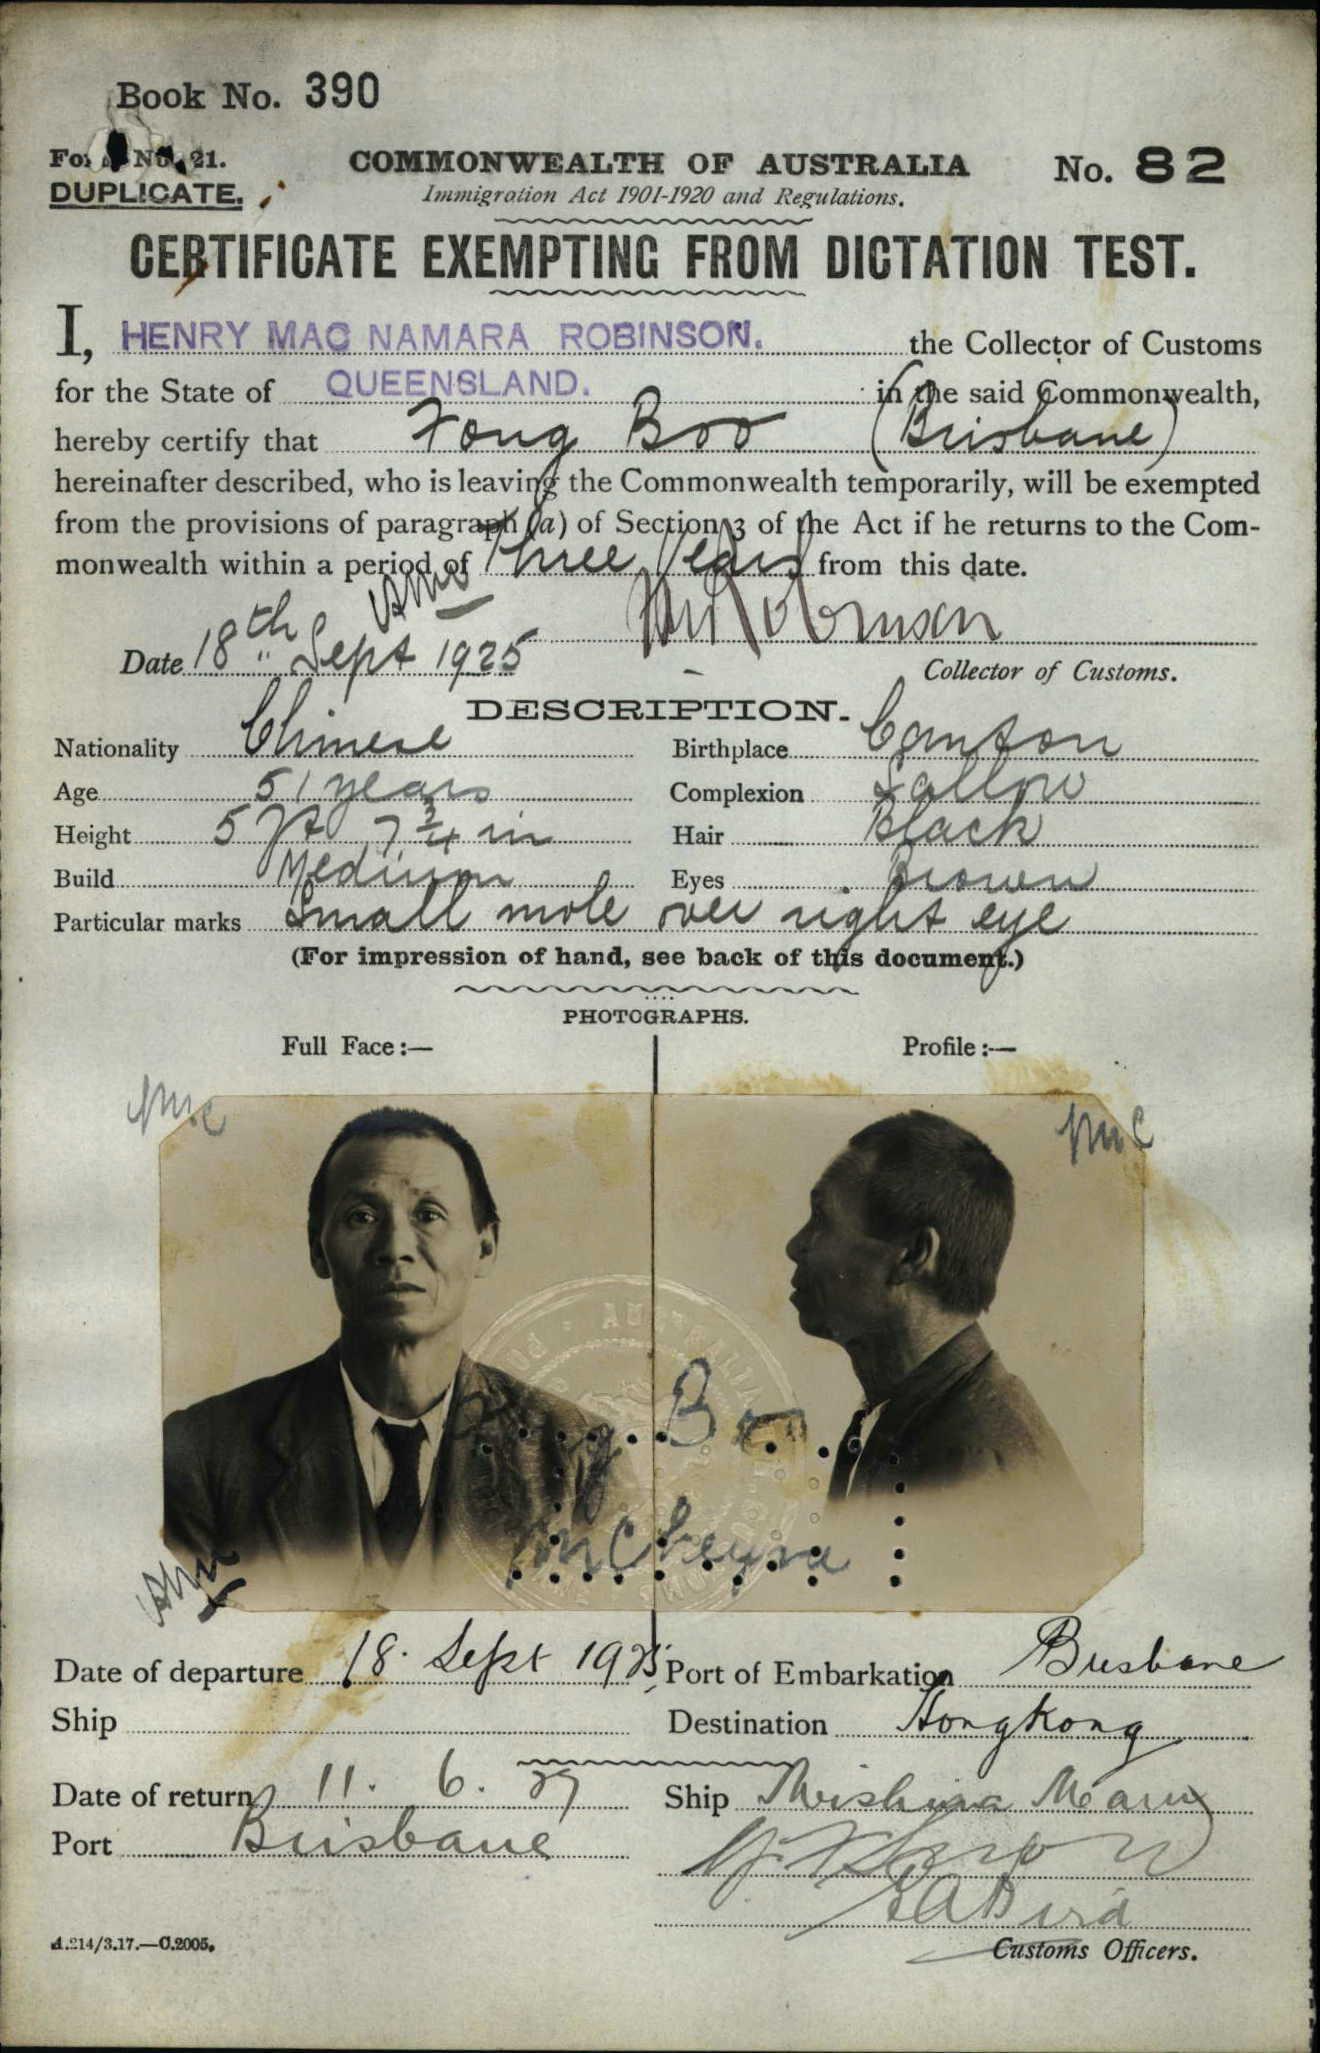 Book No. 390
Form No. 21.
DUPLICATE.
COMMONWEALTH OF AUSTRALIA
No. 82
Immigration Act 1901-1920 and Regulations.
CERTIFICATE EXEMPTING FROM DICTATION TEST.
I, HENRY MAC NAMARA ROBINSON. the Collector of Customs
for the State of QUEENSLAND. in the said Commonwealth,
hereby certify that Fong Boo (Brisbane)
hereinafter described, who is leaving the Commonwealth temporarily, will be exempted
from the provisions of paragraph (a) of Section 3 of the Act if he returns to the Com-
monwealth within a period of three years from this date.
Date 18th Sept 1925
Collector of Customs.
DESCRIPTION.
Nationality Chinese Birthplace Canton
Age 51 years Complexion Sallow
Height 5 ft 7 3/4 in Hair Black
Build Medium Eyes Brown
Particular marks Small mole over right eye
(For impression of hand, see back of this document.)
PHOTOGRAPHS.
Full Face:— Profile:—
Boo
Date of departure 18. Sept 1925 Port of Embarkation Brisbane
Ship Destination Hongkong
Date of return 11. 6. 27 Ship Mishima Maru
Port Brisbane
Customs Officers.
A.214/3.17.—C.2005.